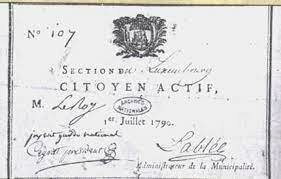 N° 107
SECTION du Luxembourg
CITOYEN ACTIF,
M. LeRoy
ARCHIVES NATIONALES
1er. Juillet 1790.
national
président
Sablée
Administrateur de la Municipalité.